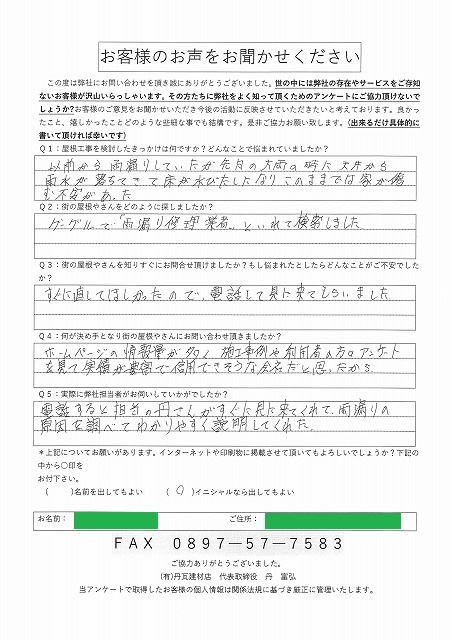 お客様のお声をお聞かせください
この度は弊社にお問い合わせを頂き誠にありがとうございました。世の中には弊社の存在やサービスをご存知
ないお客様が沢山いらっしゃいます。その方たちに弊社をよく知って頂くためのアンケートにご協力頂けないで
しょうか?お客様のご意見をお聞かせいただき今後の活動に反映させていただきたいと考えております。良かっ
たこと、嬉しかったことどのような些細な事でも結構です。是非ご協力お願い致します。(出来るだけ具体的に
書いて頂ければ幸いです)
Q1:屋根工事を検討したきっかけは何ですか?どんなことで悩まれていましたか?
以前から雨漏りしていたが先日の大雨の時に天井から
雨水が落ちてきて床が水びたしになりこのままでは家が傷
む不安があった
Q2:街の屋根やさんをどのように探しましたか?
グーグルで「雨漏り修理 業者」といれて検索しました
Q3:街の屋根やさんを知りすぐにお問合せ頂けましたか?もし悩まれたとしたらどんなことがご不安でした
か?
すぐに直してほしかったので、電話して見に来てもらいました
Q4:何が決め手となり街の屋根やさんにお問い合わせ頂きましたか?
ホームページの情報量が多く 施工事例や利用者の方のアンケート
を見て実績が豊富で信用できそうな会社だと思ったから
Q5:実際に弊社担当者がお伺いしていかがでしたか?
電話すると担当の丹さんがすぐに見に来てくれて、雨漏りの
原因を調べてわかりやすく説明してくれた。
*上記についてお願いがあります。インターネットや印刷物に掲載させて頂いてもよろしいでしょうか?下記の
中から○印を
お付下さい。
( )名前を出してもよい (○)イニシャルなら出してもよい
お名前: ご住所:
FAX 0897-57-7583
ご協力ありがとうございました。
(有)丹瓦建材店 代表取締役 丹 富弘
当アンケートで取得したお客様の個人情報は関係法規に基づき厳正に管理いたします。